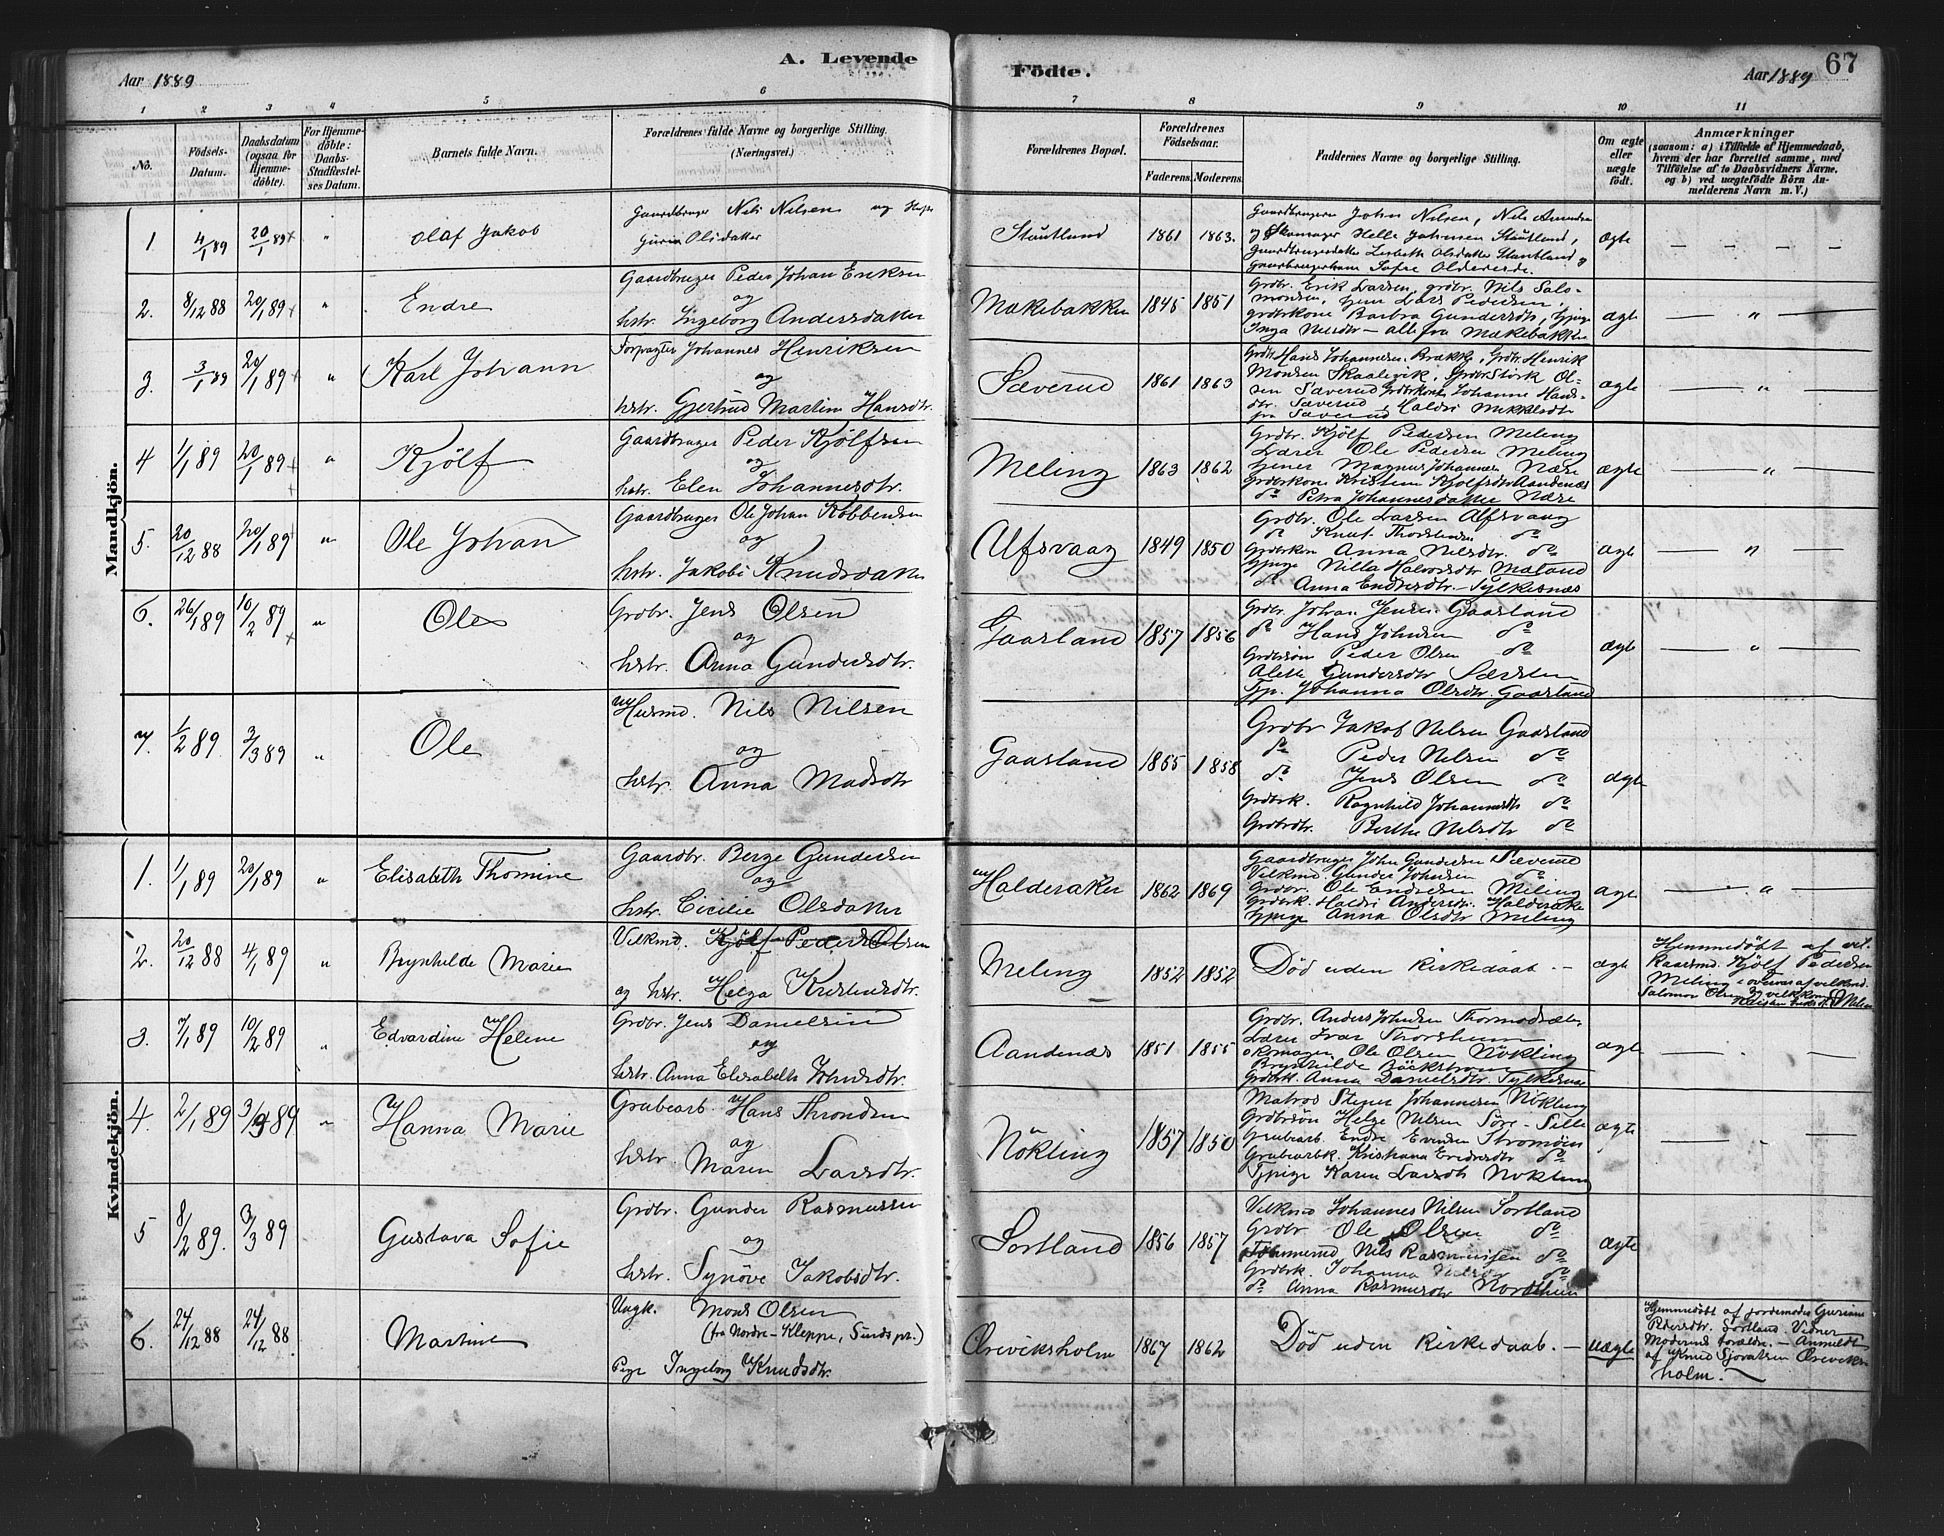 A. Levende Födte.
67
Aar 1889
Aar 1889
1 2 3 4 5 6 7 8 9 10 11
No.
Födsels-Datum.
Daabsdatum (ogsaa for Hjemmedöbte).
For Hjemmedöbte: Daabs-Stadfestelses Datum.
Barnets fulde Navn.
Forældrenes fulde Navne og borgerlige Stilling. (Næringsvei.)
Forældrenes Bopæl.
Forældrenes Födselsaar.
Faderens. Moderens.
Faddernes Navne og borgerlige Stilling.
Om ægte eller uægte födt.
Anmærkninger
(saasom: a) i Tilfælde af Hjemmedaab, hvem der har forrettet samme, med Tilföielse af to Daabsvidners Navne, og b) ved uægtefödte Börn Anmelderens Navn m. V.)
Mandkjön.
1 4/1 89 20/1 89 " Olaf Jakob
Gaardbruger Nils Nilsen og
Olsdatter
1861 1863.
Gaardbrugerne John Nilsen, Nils
Helle
ægte
2. 8/12 88 20/1 89 " Endre
Gaardbruger Peder Johan Eriksen
og
hstr. Ingeborg Andersdatter
Møkebakken 1845 1851
Grdbr. Erik Larsen, grdbr. Nils Salomonsen, Lars Pedersen,
grdbrkone Barbra Gundersdtr,
Inga Nilsdtr — alle fra Møkebakken
ægte "
3. 3/1 89 20/1 89 " Karl Johann
Forpagter Johannes Henriksen
og
hstr. Gjertrud Martine Hansdtr.
Sæverud 1861 1863
Grdbr. Hans Johannesen Brække, Grdbr. Henrik
Monsen Skaalevik, Grdbr. Störk Olsen Sæverud Grdbrkone Johanne Hansdtr. Sæverud, Haldri Mikkelsdtr
fra Sæverud
ægte "
4 1/1 89 20/1 89 " Kjölf
Gaardbruger Peder Kjölfsen
og
hstr. Elen Johannesdtr.
Meling 1863 1862
Grdbr. Kjölf Pedersen Meling
Lærer Ole Pedersen Meling
Magnus Johannes Nære
Grdbrkone Kristine Kjolfsdtr Aandenæs
do Petra Johannesdatter Nære
ægte "
5. 20/12 88 20/1 89 " Ole Johan
Gaardbruger Ole Johan
og
hstr. Jakobi Knudsdatter
Alfsvaag 1849 1850
Grdbr. Ole Larsen Alfsvaag
do Knut do
Grdbrkon Anna Nilsdtr. do
Nilla Halvorsdtr Maland
do Anna Endresdtr — Fylkesnæs
ægte "
6. 26/1 89 10/2 89 " Ole
Grdbr. Jens Olsen
og
hstr. Anna Gundersdtr.
Gaasland 1857 1856
Grdbr. Johan Jensen Gaasland
do Hans Johnsen do
Grdbrsön Peder Olsen do
Alette Gundersdtr
Tjp. Johanna Olsdtr. Gaasland
ægte "
7. 1/2 89 3/3 89 " Ole
Husmd. Nils Nilsen
og
hstr. Anna Madsdtr
Gaasland 1855 1858
Grdbr Jakob Nilsen Gaasland
do Peder Nilsen do
do Jens Olsen do
Grdbrk. Ragnhild Johannesdtr do
Grdbrdtr. Berthe Nilsdtr do
ægte
Kvindekjön.
1. 1/1 89 20/1 89 " Elisabeth Thomine
Gaardbr. Berge Gundersen
og
hstr. Cicilie Olsdatter
Halderaker 1862 1869
Gaardbruger John Gundersen Sæverud
Vilkmd. Gunder Johnsen do
Grdbr. Ole Endresen Meling
Grdbrk. Haldri Andersdtr. Halderaker
Tjpige Anna Olsdtr Meling
ægte "
2. 20/12 88 4/1 89 " Brynhilde Marie
Vilkmd. Kjölf Peders Olsen
og hstr. Helga Kristensdtr.
Meling 1852 1852
Död uden Kirkedaab. —
ægte
Hjemmedöbt af vilkaarsmd. Kjölf Pedersen
Meling i overvær af vilkmd.
Salomon Olsen og vilkkone
3. 7/1 89 10/2 89 " Edvardine Helene
Grdbr. Jens Danielsen
og
hstr. Anna Elisabeth Johnsdtr.
Aandenæs 1851 1855
Grdbr. Anders Johnsen
Lærer Ivar Thorsheim
Skomager Ole Olsen Nökling
Brynhilde Bäckstrom
Grdbrk. Anna Danielsdtr. Fylkesnæs
ægte
4. 2/1 89 3/3 89 " Hanna Marie
Grubearb. Hans Throndsen
og
hstr. Maren Larsdtr.
Nökling 1857 1850
Matros Stener Johannesen Nökling
Grdbrsön Helge Nilsen Söre-Sille
Grubearb. Endre Evensen Stromöen
Grubearbk. Kristiana Endresdtr do
Tjpige Karen Larsdtr Nökling
ægte
5 8/2 89. 3/3 89 Gustava Sofie
Grdbr. Gunder Rasmussen
og
hstr. Synöve Jakobsdtr.
Sortland 1856 1857
Vilkmd Johannes Nilsen Sortland
Grdbr Ole Olsen do
Nils Rasmussen do
Grdbrk. Johanna Nilsdtr do
do Anna Rasmusdtr
ægte
6 24/12 88 24/12 88 Martine
Ungk. Mons Olsen
(fra Nordre-Kleppe, Sunds pr.)
Pige Ingeborg Knudsdtr.
Öreviksholm 1867 1862
Död uden Kirkedaab. —
uægte
Hjemmedöbt af jordemoder Guriane
Pedersdtr. Sortland Vidner
Moderens Forældre. — Anmeldt
af Knud Sjovatsen Öreviksholm.